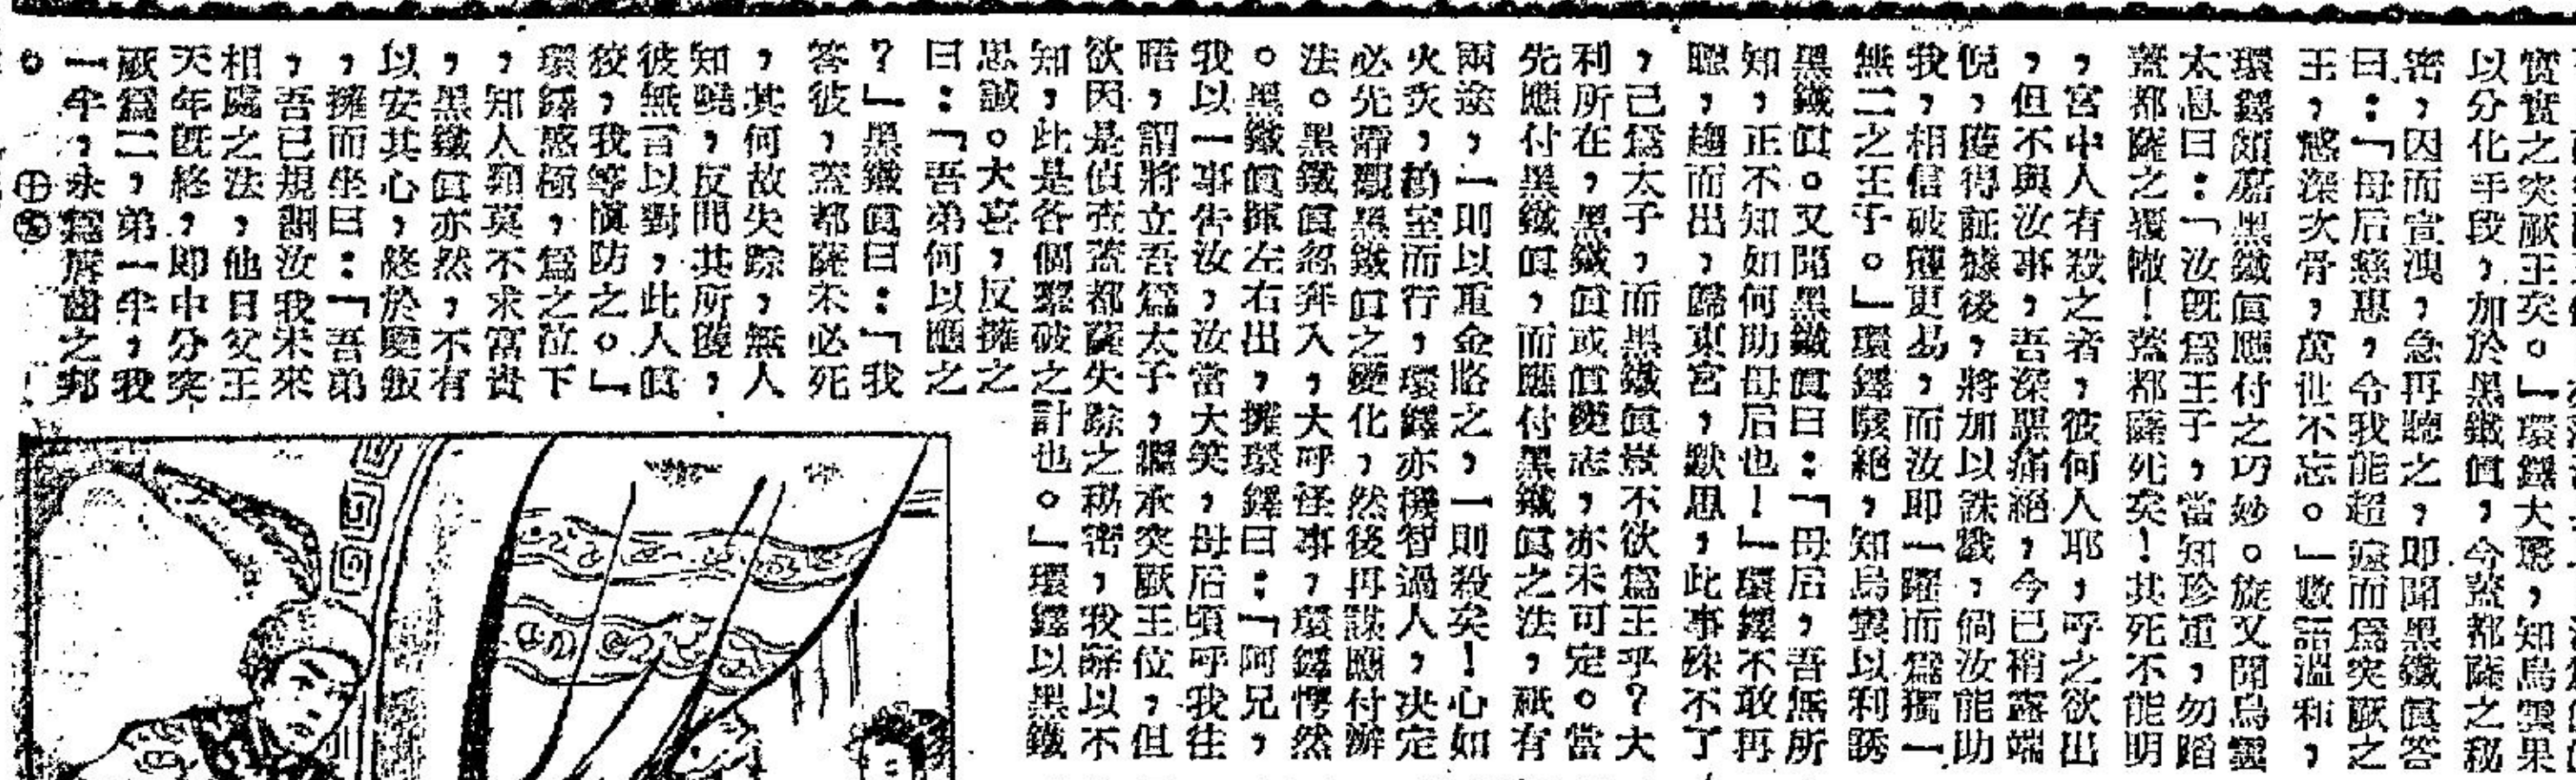 實實之突厥王矣。」環鐸大聰,知烏雲果
以分化手段,加於黑鐵眞,今蓋都薩之秘
密,因而宣洩,急再聽之,卽聞黑鐵眞答
曰:「母后慈惠,令我能超遠而爲突厥之
王,感深次骨,萬世不忘。」數語溫和,
環鐸頗黑鐵眞應付之巧妙。旋又聞烏雲
太息曰:「汝旣爲王子,當知珍重,勿蹈
蓋都薩之覆轍!蓋都薩死矣!其死不能明
,宮中人有殺之者,彼何人耶,呼之欲出
,但不與汝事,吾深思痛絕,今已稍露端
倪,獲得証據後,將加以誅戮,倘汝能助
我,相信破獲更易,而汝卽一躍而爲獨一
無二之王子。」環鐸駭絕,知烏雲以利誘
黑鐵眞。又聞黑鐵眞曰:「母后,吾無所
知,正不知如何助母后也!」環鐸不敢再
聽,趨而出,歸東宮,默思,此事殊不了
,已爲太子,而黑鐵眞豈不欲爲王乎?大
利所在,黑鐵眞或眞變志,亦未可定。當
先應付黑鐵眞,而應付黑鐵眞之法,祇有
兩途,一則以重金賂之,一則殺矣!心如
火炙,繞室而行,環鐸亦機智過人,決定
必先靜觀黑鐵眞之變化,然後再謀應付辦
法。黑鐵眞忽奔入,大呼怪事,環鐸愕然
。黑鐵眞揮左右出,擁環鐸曰:「阿兄,
我以一事告汝,汝當大笑,母后頃呼我往
晤,謂將立吾爲太子,繼承突厥王位,但
欲因是偵查蓋都薩失踪之秘密,我辭以不
知,此是各個擊破之計也。」環鐸以黑鐵
思誠。大喜,反擁之
曰:「吾弟何以應之
?」黑鐵眞曰:「我
答彼,蓋都薩未必死
,其何故失踪,無人
知曉,反問其所獲,
彼無言以對,此人眞
狡,我等愼防之。」
環鐸感極,爲之泣下
,知人類莫不求富貴
,黑鐵眞亦然,不有
以安其心,終於變叛
,擁而坐曰:「吾弟
,吾已規劃汝我未來
相處之法,他日父王
天年旣終,卽中分突
厥爲二,弟一半,我
一半,永爲唇齒之邦
。